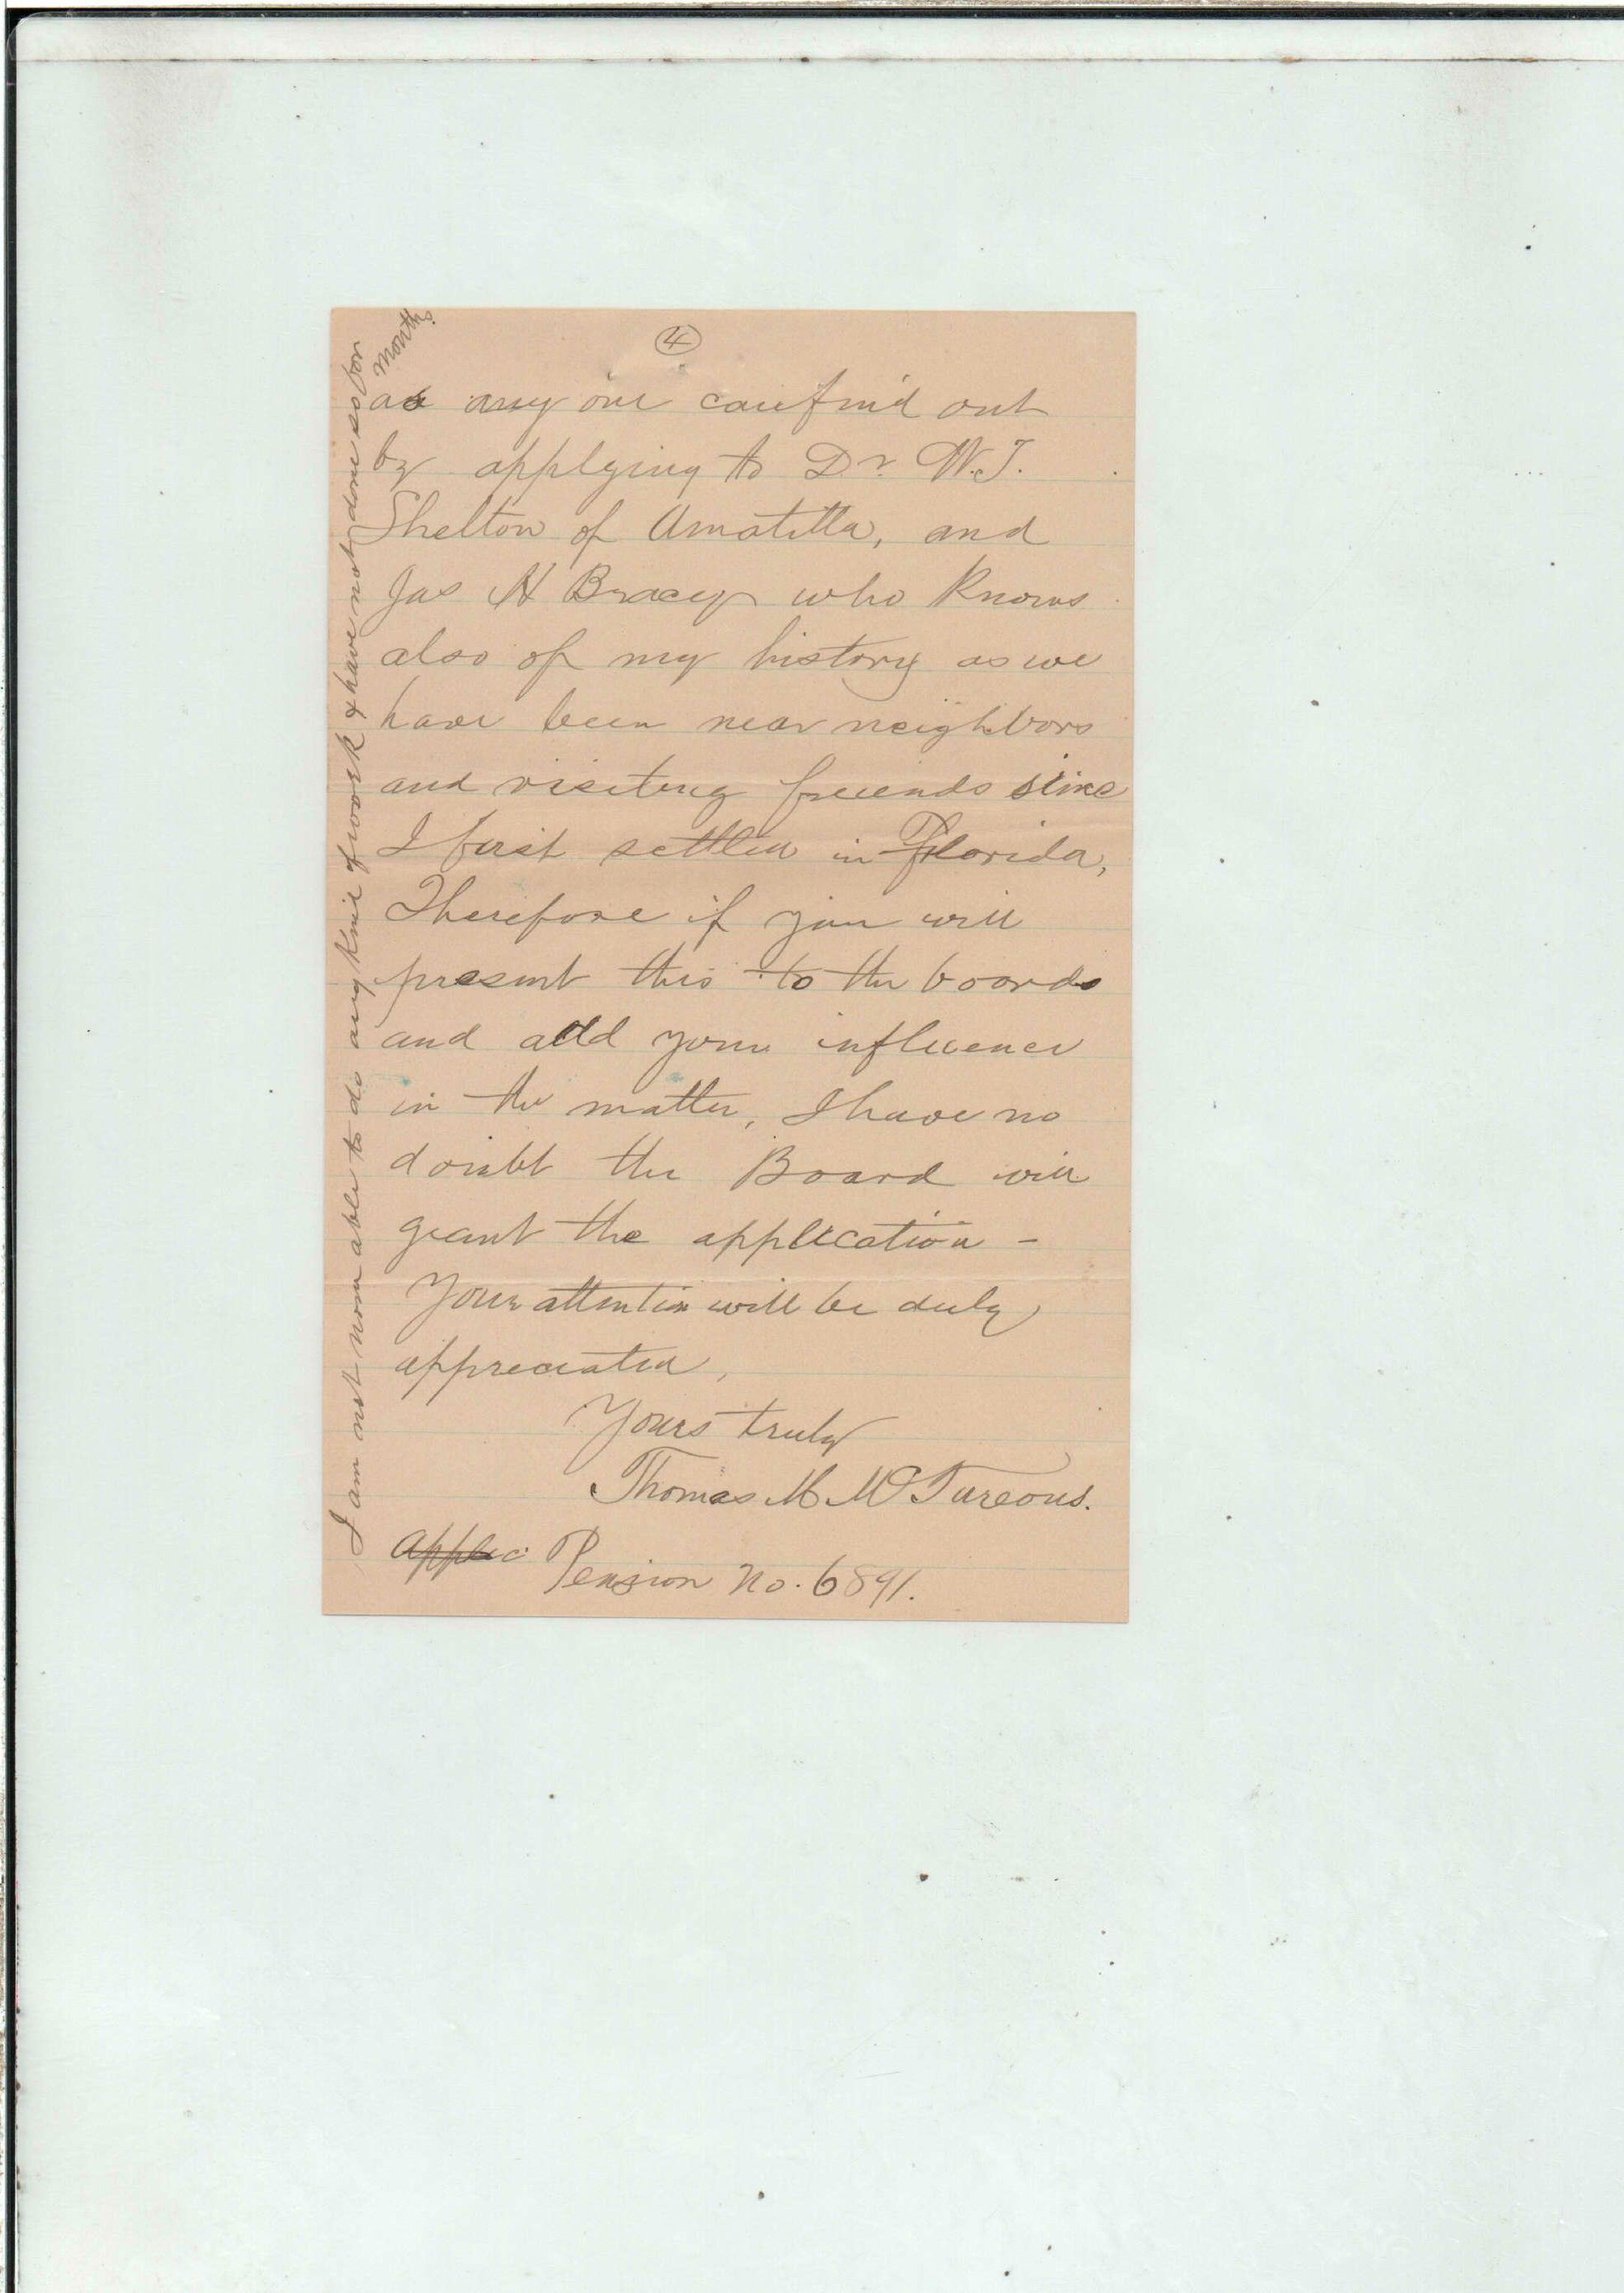 ④
as any one can find out
by applying to Dr. W.T.
Shelton of Umatilla, and
Jas H Bracey who knows
also of my history as we
have been near neighbors
and visiting friends since
I first settled in Florida,
Therefore if you will
present this to the boards
and add your influence
in the matter, I have no
doubt the Board will
grant the application -
Your attention will be duly
appreciated,
Yours truly
Thomas M
Applic
Pension No. 6891.
I am not now able to do any kind of work & have not done so for
months.